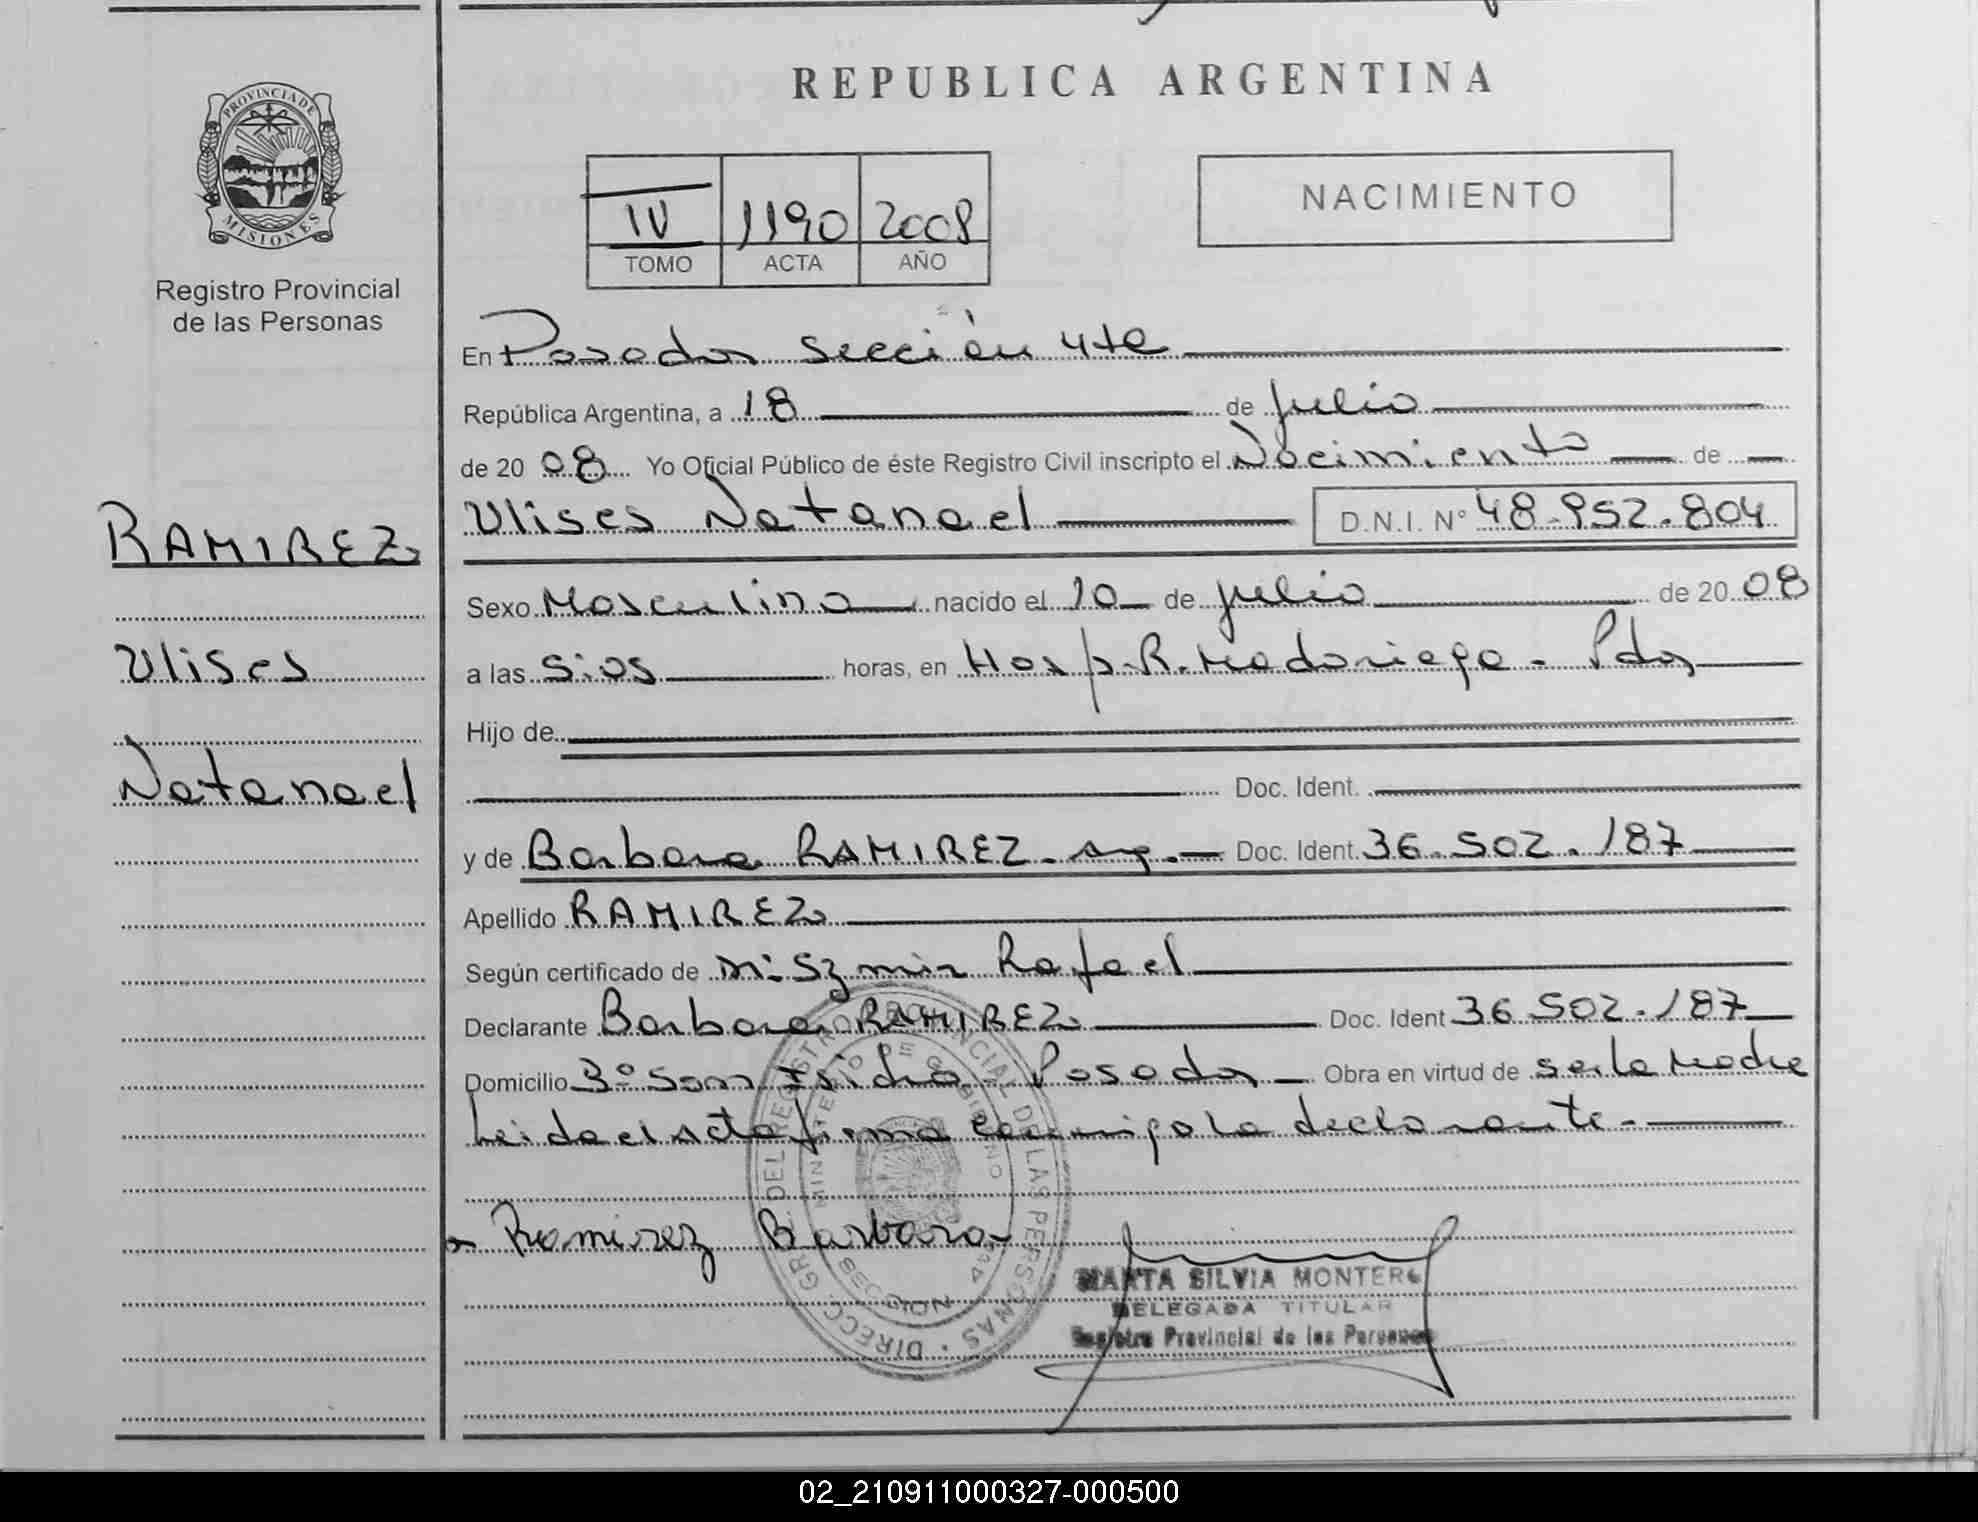 REPUBLICA ARGENTINA
PROVINCIA DE
MISIONES
Registro Provincial
de las Personas
IV 1190 2008
TOMO ACTA AÑO
NACIMIENTO
En Posadas sección 4ta
República Argentina, a 18 de julio
de 20 08 Yo Oficial Público de éste Registro Civil inscripto el Nacimiento de
Ulises Natanael D.N.I. N° 48.952.804
RAMIREZ
Ulises
Natanael
Sexo Masculino nacido el 10 de julio de 20 08
a las 5:05 horas, en Hosp. R. Madariaga - Pdas
Hijo de
Doc. Ident.
y de Barbara RAMIREZ Doc. Ident. 36.502.187
Apellido RAMIREZ
Según certificado de Rafael
Declarante Barbara RAMIREZ Doc. Ident 36.502.187
Domicilio Bº San Isidro - Posadas Obra en virtud de ser la madre
Leida el acta firma conmigo la declarante.-
Ramirez Barbara
DIRECC. GRAL. DEL REGISTRO PROVINCIAL DE LAS PERSONAS
MINISTERIO DE GOBIERNO
SECCION 4ta
MARTA SILVIA MONTERO
DELEGADA TITULAR
Registro Provincial de las Personas
02_210911000327-000500